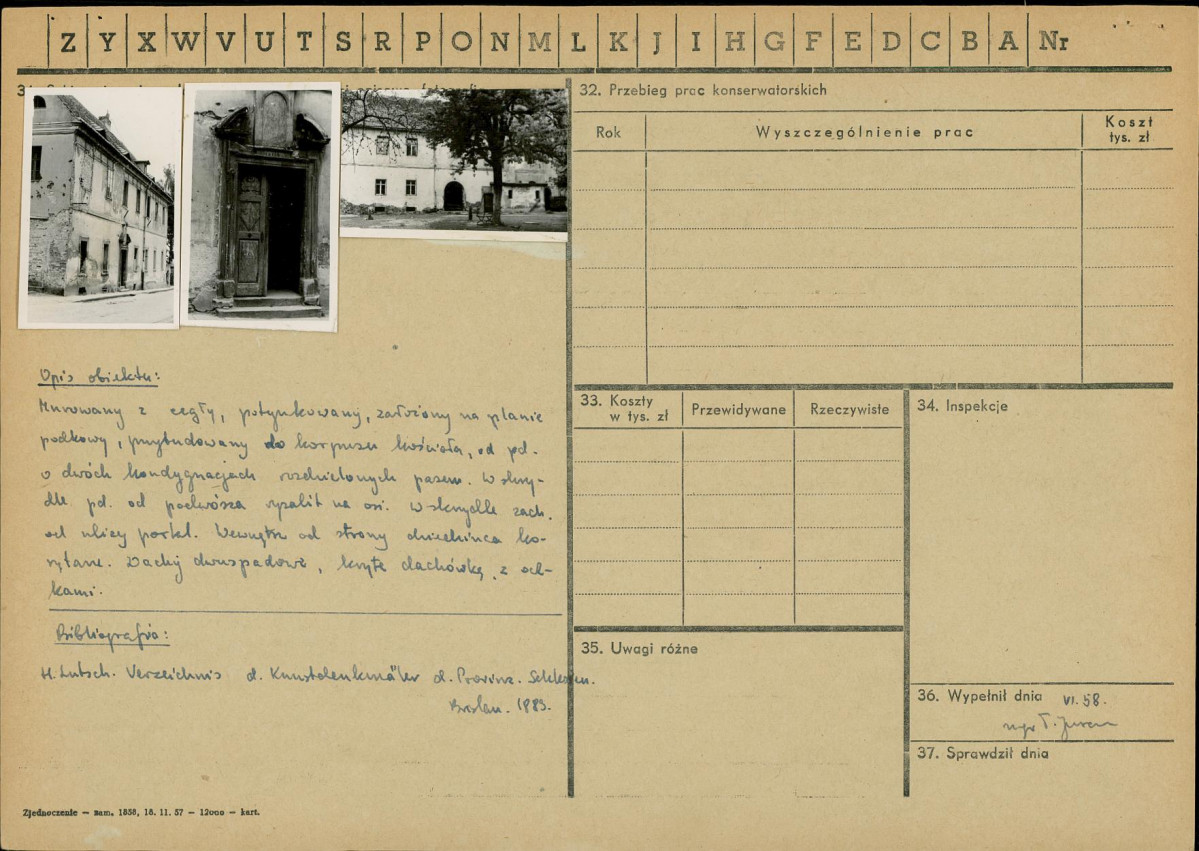 Z Y X W V U T S R P O N M L K J I H G F E D C B A Nr
32. Przebieg prac konserwatorskich
Rok
Wyszczególnienie prac
Koszt
tys. zł
Opis obiektu:
Murowany z cegły, potynkowany, założony na planie
podkowy, przybudowany do korpusu kościoła, od pd.
o dwóch kondygnacjach rozdzielonych pasem. W skrzy-
dle pd. od podwórza ryzalit na osi. W skrzydle zach.
od ulicy portal. Wewnątrz od strony dziedzińca ko-
rytarze. Dachy dwuspadowe, kryte dachówką, z
kami.
Bibliografia:
H. Lutsch. Verzeichnis d. Kunstdenkmäler d. Provinz. Schlesien.
Breslau. 1889.
33. Koszty
w tys. zł
Przewidywane
Rzeczywiste
34. Inspekcje
35. Uwagi różne
36. Wypełnił dnia VI.58.
mgr T.
37. Sprawdził dnia
Zjednoczenie — zam. 1858, 18. 11. 57 — 12000 — kart.